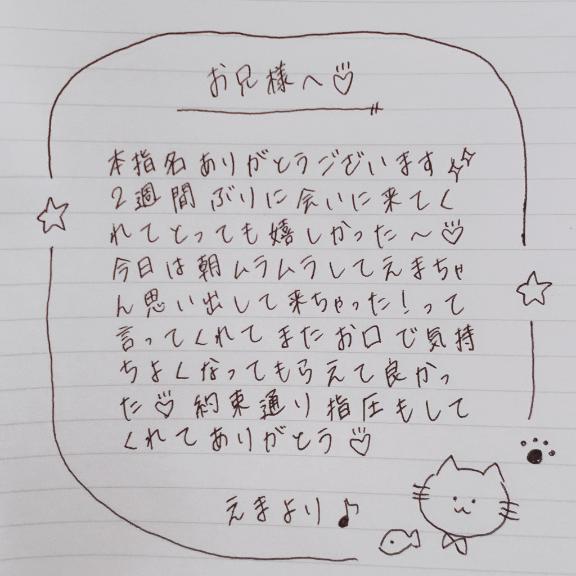 お兄様へ♡
本指名ありがとうございます✨
2週間ぶりに会いに来てく
れてとっても嬉しかった〜♡
今日は朝ムラムラしてえまちゃ
ん思い出して来ちゃった！って
言ってくれてまたお口で気持
ちよくなってもらえて良かっ
た♡約束通り指圧もして
くれてありがとう♡
えまより♪